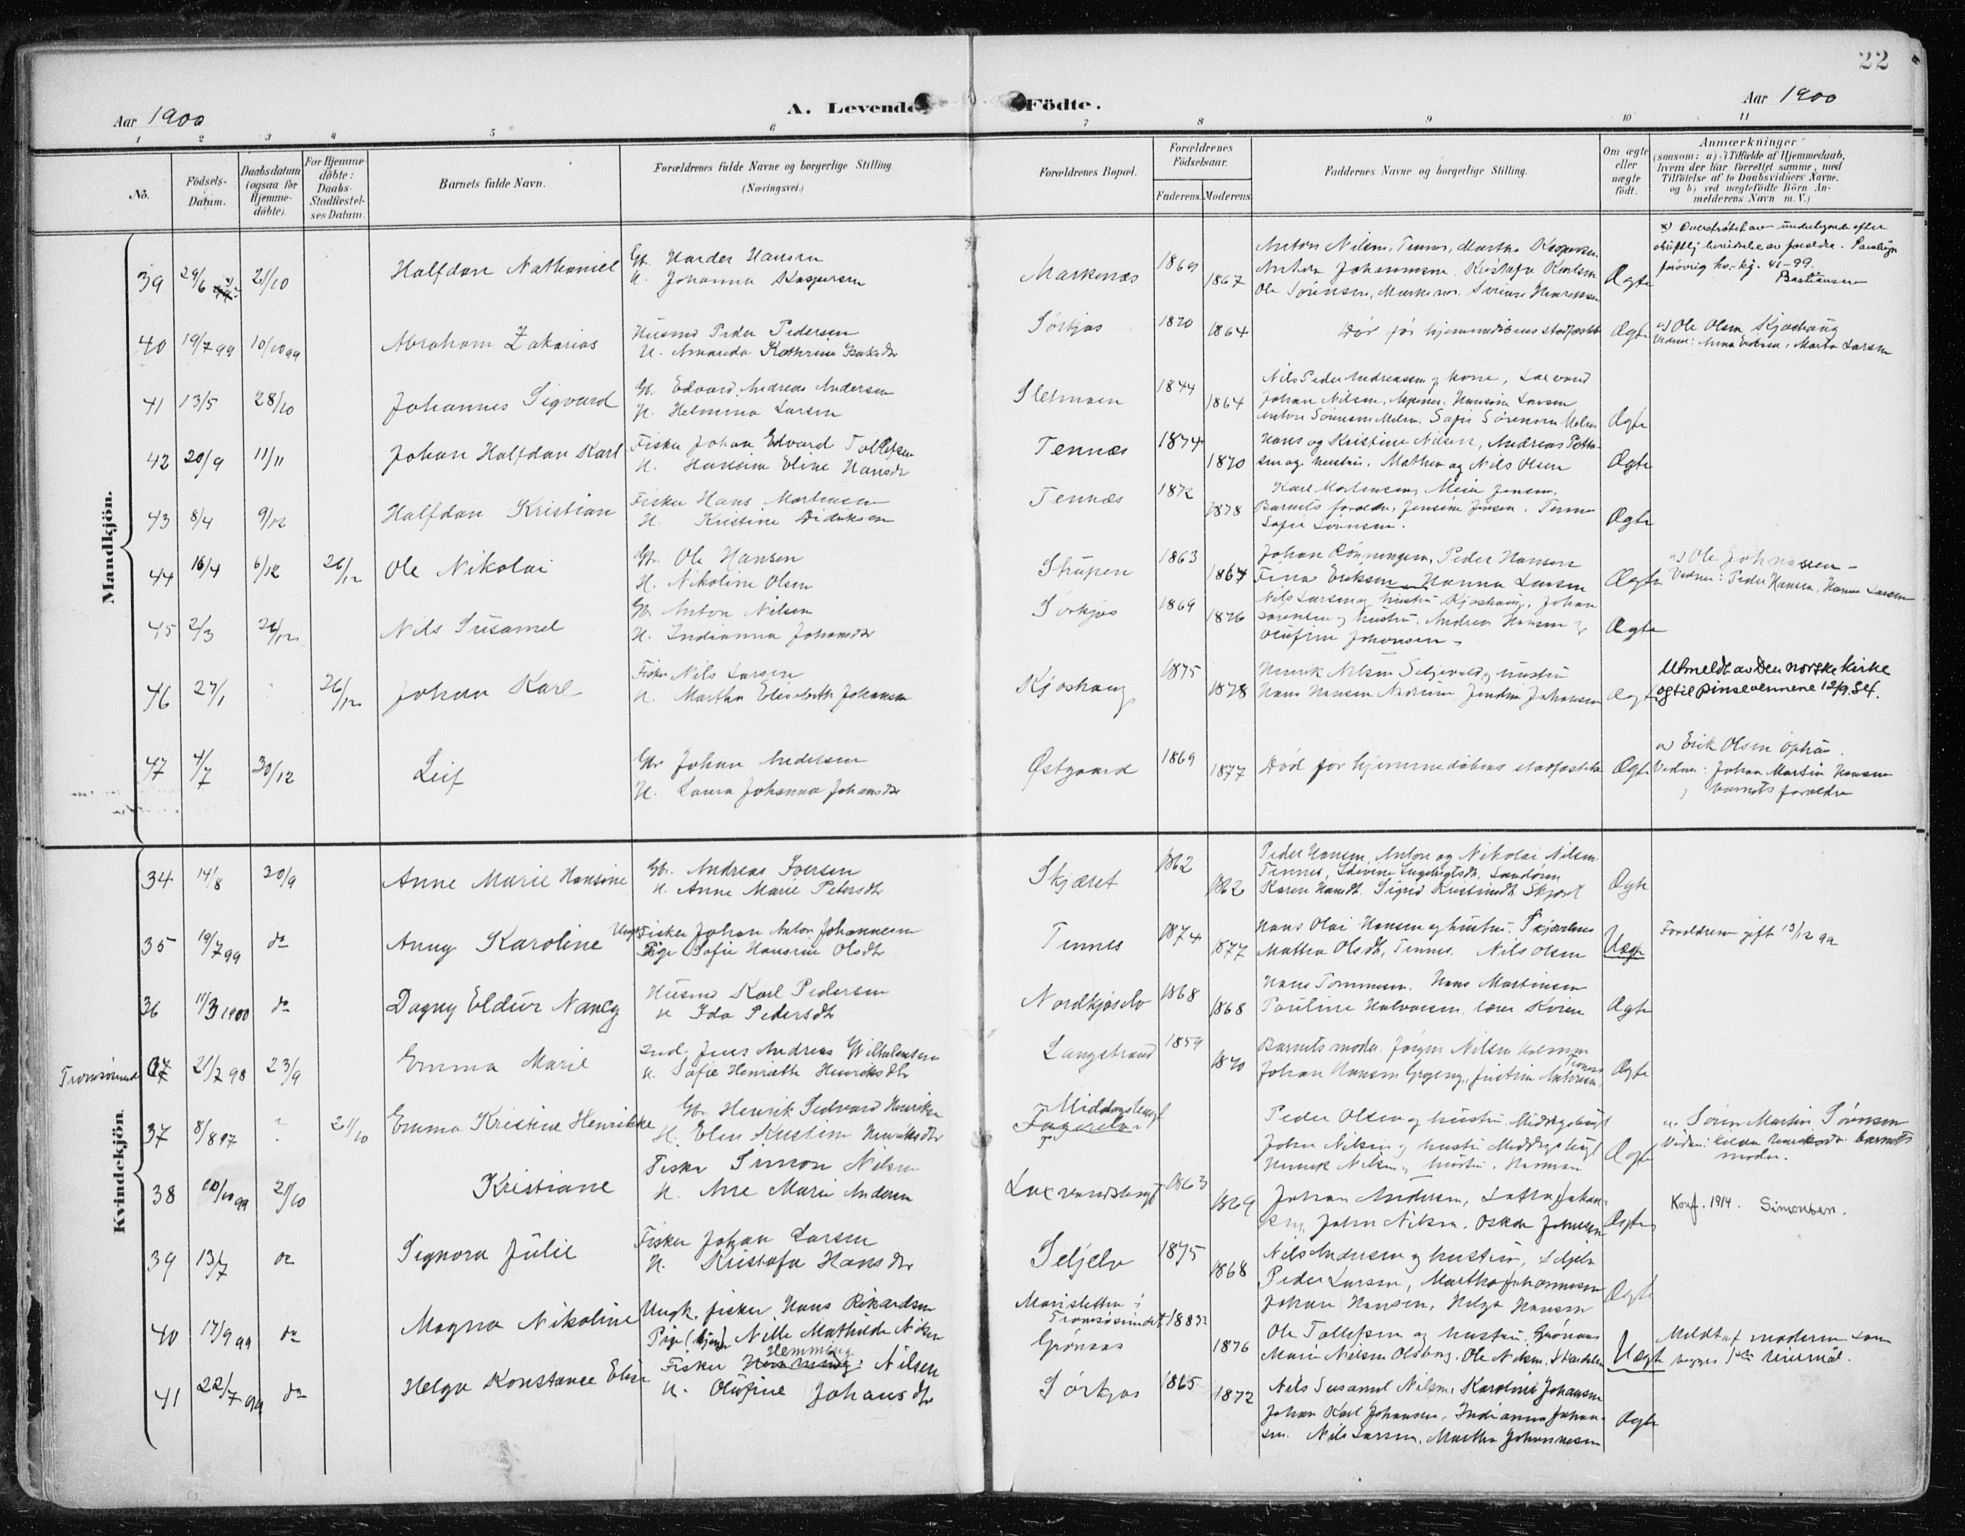 22
Aar 1900
A. Levende Födte.
Aar 1900
1 2 3 4 5 6 7 8 9 10 11
No.
Födsels-Datum.
Daabsdatum (ogsaa for Hjemmedöbte).
For Hjemmedöbte: Daabs-Stadfæstelses Datum.
Barnets fulde Navn.
Forældrenes fulde Navne og borgerlige Stilling
(Næringsvei.)
Forældrenes Bopæl.
Forældrenes Födselsaar.
Faderens. Moderens.
Faddernes Navne og borgerlige Stilling.
Om ægte eller uægte födt.
Anmærkninger
(saasom: a) i Tilfælde af Hjemmedaab,
hvem der har forrettet samme, med
Tilföielse af to Daabsvidners Navne,
og b) ved uægtefödte Börn An-
melderens Navn m. V.)
Mandkjön.
39 29/6 21/10 Halfdan Nathaniel Gbr. Harder Hansen
H. Johanna Kaspersen
Markenæs 1869 1867
Anton Nilsen, Tennes, Martha Kaspersen
Johannesen, Kristofa Karlsen
Ole Sørensen, Markenes,
Ægte
Bastiansen
40 19/7 99 10/10 99 Abraham Zakarias Husmd Peder Pedersen
H. Amanda Kathrine Isaksdtr
Sørkjos 1870 1864 Død før hjemmedåbens stadfæst. Ægte
a) Ole Olsen Kjoshaug
Vidner: Anna Eriksen, Marta Larsen
41 13/5 28/10 Johannes Sigvard Gbr. Edvard Andreas Andersen
H. Helmina Larsen
Sletmoen 1844 1864
Nils Peder Andreassen og kone,
Johan Nilsen, Hansine Larsen
Anton Sørensen Melen, Sofie Sørensen Melen
Ægte
42 20/9 11/11 Johan Halfdan Karl Fisker Johan Edvard Tollefsen
H. Hansine Eline Hansdtr
Tennæs 1874 1870
Hans og Kristine Nilsen, Andreas Petter-
sen og hustru, Mathea og Nils Olsen
Ægte
43 8/4 9/12 Halfdan Kristian Fisker Hans Mortensen
H. Kristine Didriksen
Tennæs 1872 1878
Karl Mortensen, Meier Jensen,
Barnets foreldre, Jensine Jensen, Tennes
Sofie Sørensen.
Ægte
44 16/4 6/12 26/12 Ole Nikolai Gbr. Ole Hansen
H. Nikoline Olsen
Stupen 1863 1867
Johan Rønningen, Peder Hansen
Fina Eriksen, Hanna Larsen
Ægte
a) Ole Johnasen
Vidner: Peder Hansen, Hanna Larsen
45 2/3 26/12 Nils Susamel Gbr Anton Nilsen
H. Indianna Johansdtr
Sørkjos 1869 1876
Nils Larsen og hustru Kjoshaug, Johan
Sørensen og hustru, Andrea Hansen og
Olufine Johansen
Ægte
46 27/1 26/12 Johan Karl Fisker Nils Larsen
H. Martha Elisabeth Johansen
Kjoshaug 1875 1878
Henrik Nilsen Seljevold og hustru
Hans Hansen Jendine Johansen
Ægte
Utmeldt av Den norske kirke
og til pinsevennene 12/9.54.
47 4/7 30/12 Leif Gbr. Johan Andersen
H. Laura Johanna Johansdtr
Østgaard 1869 1877 Død før hjemmedåbens stadfæstelse Ægte
a) Erik Olsen
Vidner: Johan Martin Hansen
barnets foreldre
Kvindekjön.
34 14/8 20/9 Anne Marie Hansine Gbr. Andreas Iversen
H. Anne Marie Petersdtr
Skjæret 1862 1862
Peder Hansen, Anton og Nikolai Nilsen
Tennes, Sandøren
Karen Hansdtr. Sigrid Kristinedtr Skjæret
Ægte
35 19/7 99 do Anny Karoline Ungk Fisker Johan Anton Johannesen
Pige Sofie Hansine Olsdtr
Tennes 1874 1877
Hans Olai Hansen og hustru,
Mattea Olsdtr, Tennes. Nils Olsen
Uægte
Foreldrene gift 13/12 99
36 11/3 1900 do Dagny Eldur Nancy Husmd Karl Pedersen
H. Ida Pedersdtr
Nordkjoselv 1868 1868
Hans Tommesen. Hans Martinsen
Pauline Halvorsen,
Ægte
Tromsøsund 37 21/7 98 23/9 Emma Marie Ind. Jens Andreas Wilhelmsen
H. Sofie Henriette Henriksdtr
Langstrand 1859 1870
Barnets moder. Jørgen Nilsen Holman
Johan Hansen
Ægte
37 8/8 97 ? 21/10 Emma Kristine Henrikke Gbr. Henrik Sedvard Henriksen
H. Elen Kristine Henriksdtr
Middagsbugt
Peder Olsen og hustru Middagsbugt
John Nilsen og hustru Middagsbugt
Henrik Nilsen og hustru.
Ægte
a. Søren Martin Sørensen
barnets
moder.
38 10/10 99 21/10 Kristiane Fisker Simon Nilsen
H. Ane Marie Andersen
Laxvandsbugt 1863 1869
Johan Andersen, Lotta Johan-
sen, John Nilsen, Oskar Johansen
Ægte
Konf. 1914. Simonsen.
39 13/7 do Signora Julie Fisker Johan Larsen
H. Kristofa Hansdtr
Seljelv 1875 1868
Nils Andersen og hustru, Seljelv
Peder Larsen, Martha Johannesen
Johan Hansen, Helga Hansen
Ægte
40 17/9 99 do Magna Nikoline Ungk. fisker Hans Rikardsen
Pige (tjen) Nille Mathilde Nilsen
Marislettin i
Tromsøsundet
Grønaas 1883 1876
Ole Tollefsen og hustru Grønaas
Marie Nielsen Olsborg, Ole Nilsen,
Uægte
Meldt af moderen som
begges 1ste leiermål.
41 22/7 99 do Helga Konstance Elise Fisker Hemming Nilsen
H. Olufine Johansdtr
Sørkjos 1865 1872
Nils Susamel Nilsen, Karoline Johansen
Johan Karl Johansen, Indianna Johan-
sen. Nils Larsen, Martha Johannesen
Ægte